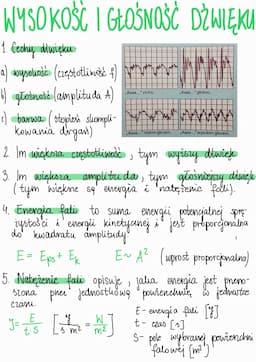 WYSOKOŚĆ I GŁOŚNOŚĆ DŹWIĘKU
1. Cechy dźwięku
a) wysokość (częstotliwość f)
b) głośność (amplituda A)
c) barwa (stopień skompli-
kowania drgań)
2. Im większa częstotliwość, tym wyższy dźwięk
3. Im większa amplituda, tym głośniejszy dźwięk
(tym większe są energia i natężenie fali).
4. Energia fali to suma energii potencjalnej sprę
żystości i energii kinetycznej i jest proporcjonalna
do kwadratu amplitudy
E = Eps + Ek E ~ A² (wprost proporcjonalna)
5. Natężenie fali opisuje, jaka energia jest przeno-
szona przez jednostkową powierzchnię w jednostce
czasu.
J = E / t·S [J / s·m² = W / m²]
E - energia fali [J]
t - czas [s]
S - pole wybranej powierzchni
falowej [m²]